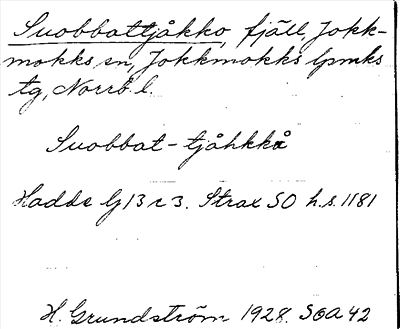 Suobbattjåkko, fjäll, Jokk-
mokks sn, Jokkmokks lpmks
tg, Norrb. l.
Suobbat-tjåhkkå
Hadde bl 13 r 3. Strax SO h.s. 1181
H. Grundström 1928. SOA 42